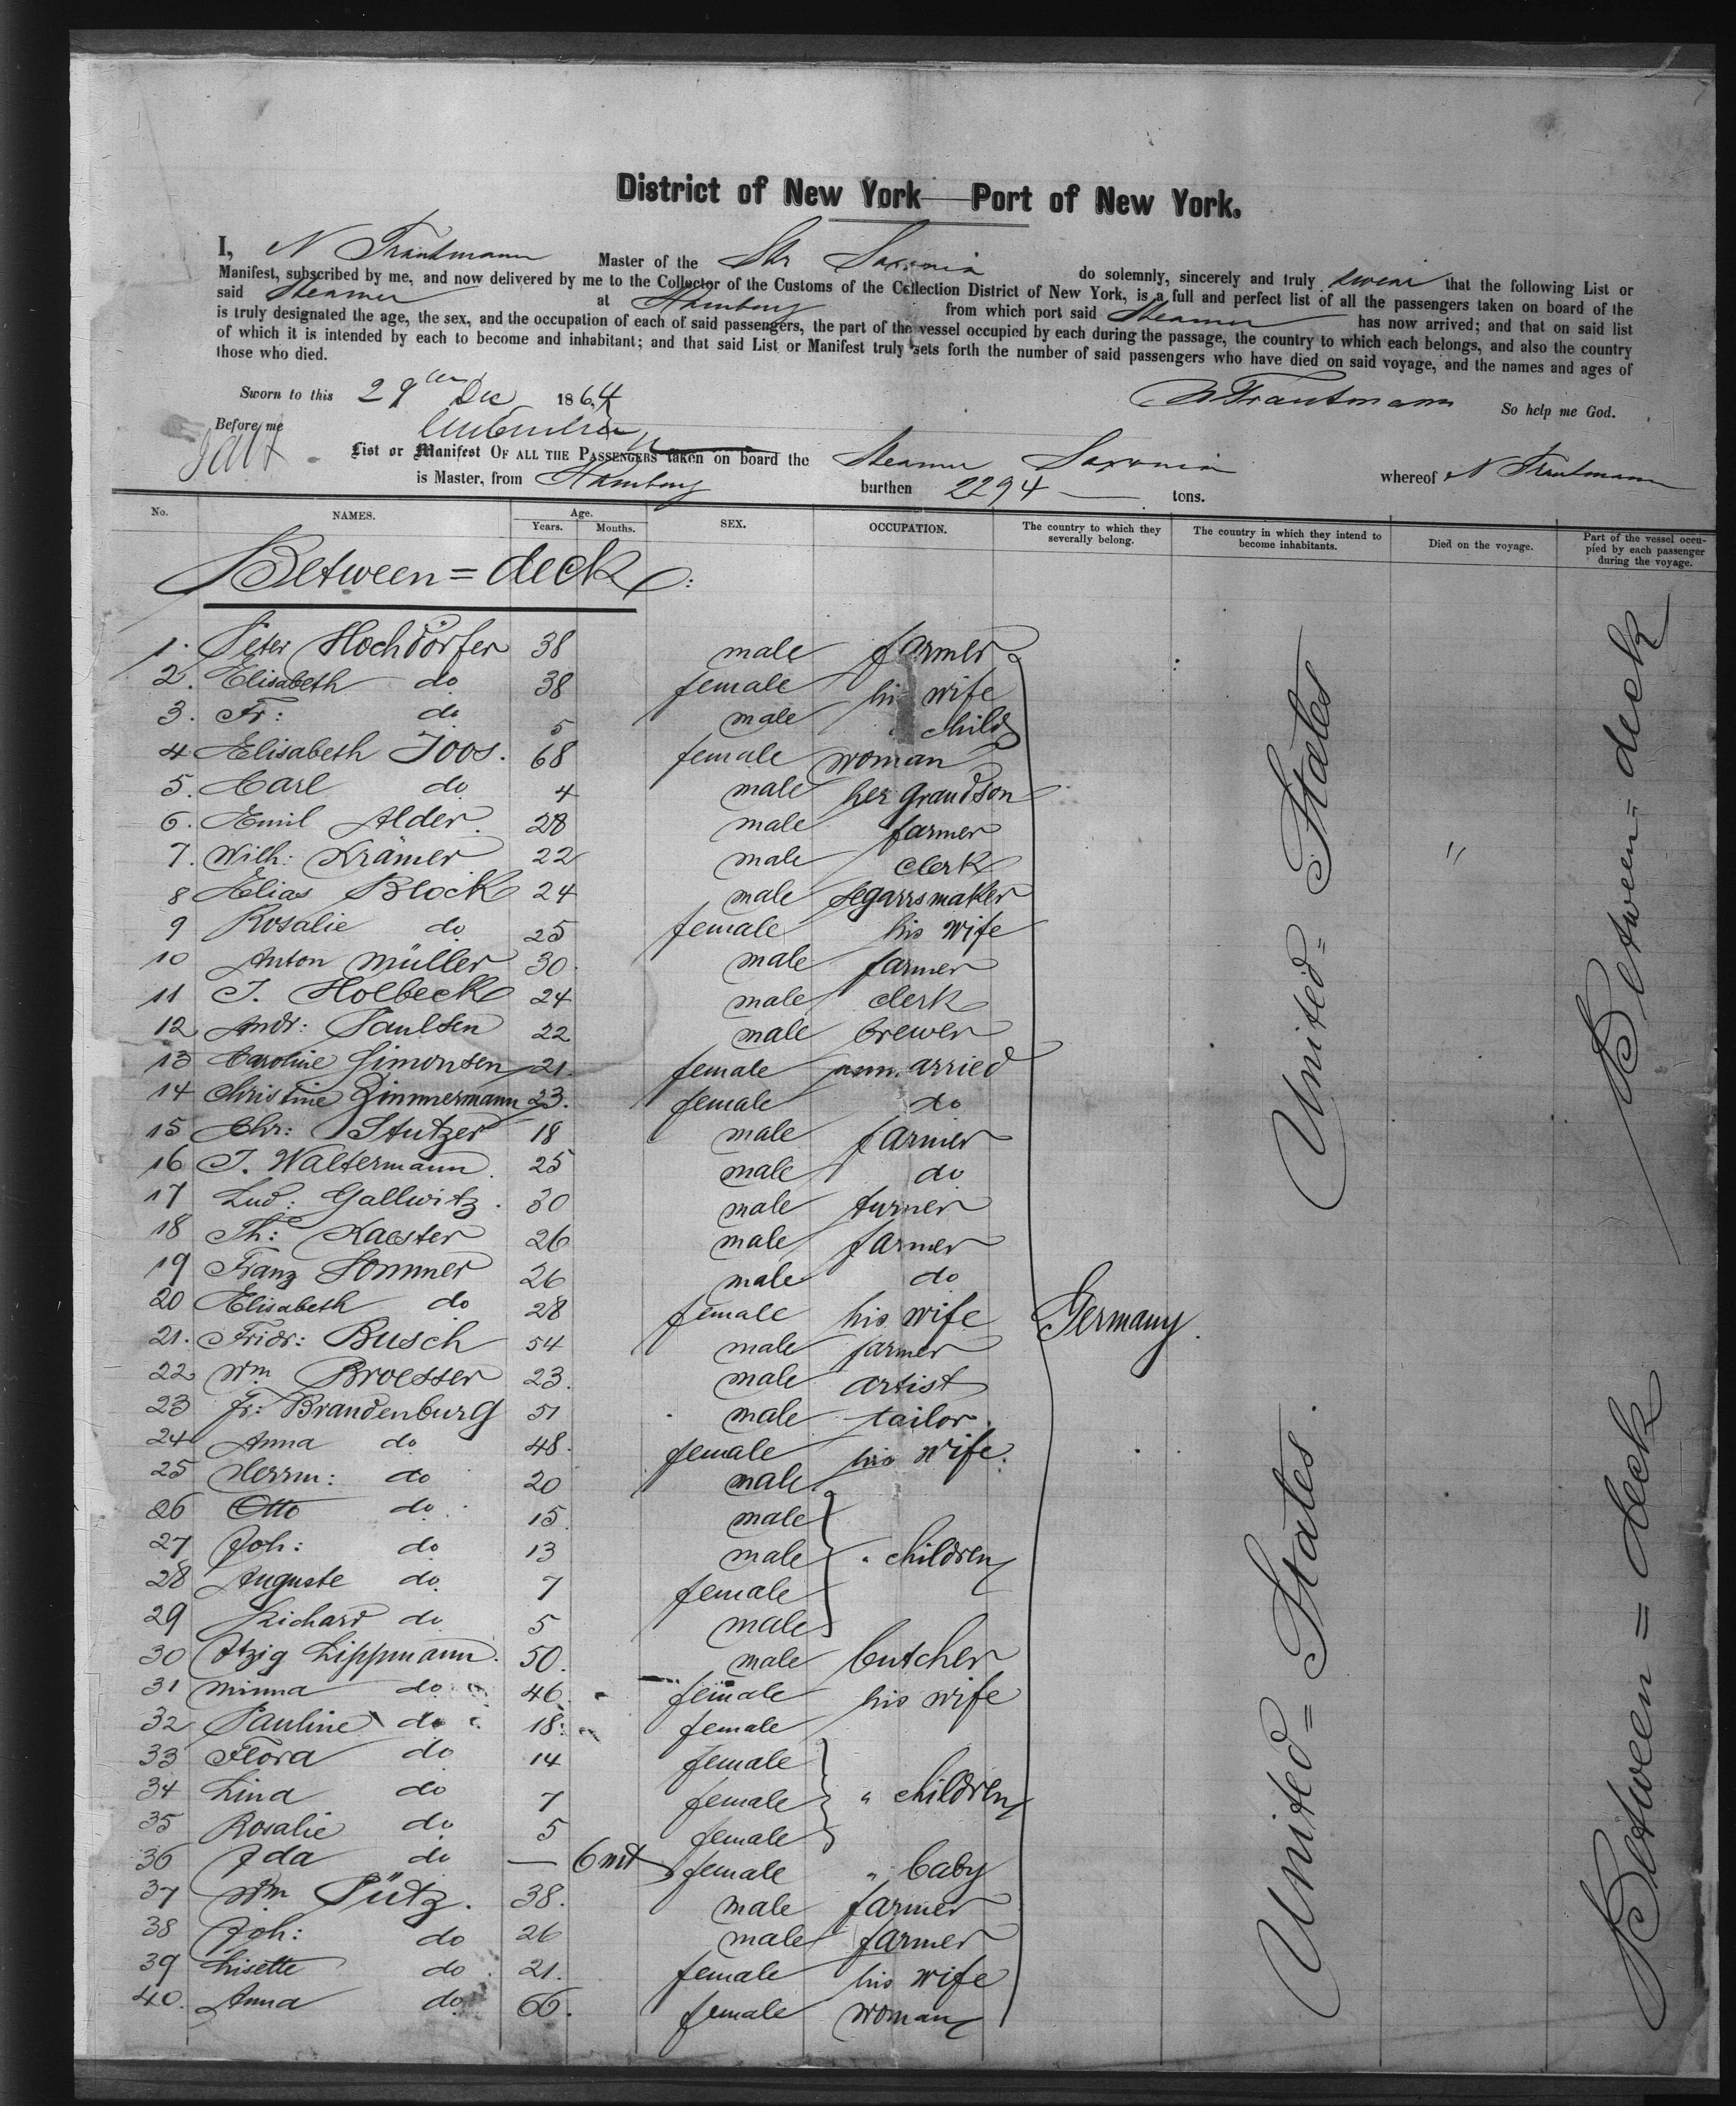 District of New York — Port of New York.
I, N Trautmann Master of the Str Saxonia do solemnly, sincerely and truly swear that the following List or
Manifest, subscribed by me, and now delivered by me to the Collector of the Customs of the Collection District of New York, is a full and perfect list of all the passengers taken on board of the
said Steamer at Hamburg from which port said Steamer has now arrived; and that on said list
is truly designated the age, the sex, and the occupation of each of said passengers, the part of the vessel occupied by each during the passage, the country to which each belongs, and also the country
of which it is intended by each to become and inhabitant; and that said List or Manifest truly sets forth the number of said passengers who have died on said voyage, and the names and ages of
those who died.
Sworn to this 29 Dec 1864 N Trautmann So help me God.
Before me
List or Manifest OF ALL THE PASSENGERS taken on board the Steamer Saxonia whereof N Trautmann
is Master, from Hamburg burthen 2294 tons.
No. NAMES. Age. Years. Months. SEX. OCCUPATION. The country to which they severally belong. The country in which they intend to become inhabitants. Died on the voyage. Part of the vessel occupied by each passenger during the voyage.
Between=deck:
1. Peter Hochdörfer 38 male farmer
2. Elisabeth do 38 female his wife
3. Fr: do 5 male " child
4 Elisabeth Joos. 68 female woman
5. Carl do 4 male her grandson
6. Emil Alder. 28 male farmer
7. Wilh: Krämer 22 male clerk
8 Elias Block 24 male segarrsmaker
9 Rosalie do 25 female his wife
10 Anton Müller 30 male farmer
11 J. Holbeck 24 male clerk
12 Andr: Paulsen 22 male brewer
13 Caroline Simonsen 21. female unmarried
14 Christine Zimmermann 23. female do
15 Chr: Stutzer 18 male farmer
16 J. Waltermann. 25 male do
17 Lud: Gallwitz. 30 male turner
18 Th: Kaester 26 male farmer
19 Franz Sommer 26 male do
20 Elisabeth do 28 female his wife
21. Fridr: Busch 54 male farmer
22 Wm Broesser 23. male artist
23 Fr: Brandenburg 51 male tailor.
24 Anna do 48. female his wife.
25 Herrm: do 20 male
26 Otto do 15. male
27 Joh: do 13 male " children
28 Auguste do. 7 female
29 Richard do 5 male
30 Itzig Lippmann. 50. male butcher
31 Minna do 46. female his wife
32 Pauline do 18. female
33 Flora do 14 female
34 Lina do 7 female " children
35 Rosalie do 5 female
36 Ida do — 6 mt female " baby
37 Wm Pütz. 38. male farmer
38 Joh: do 26 male farmer
39 Lisette do 21. female his wife
40. Anna do 66. female woman
Germany.
United= States
United= States.
"
Between= deck
Between = deck